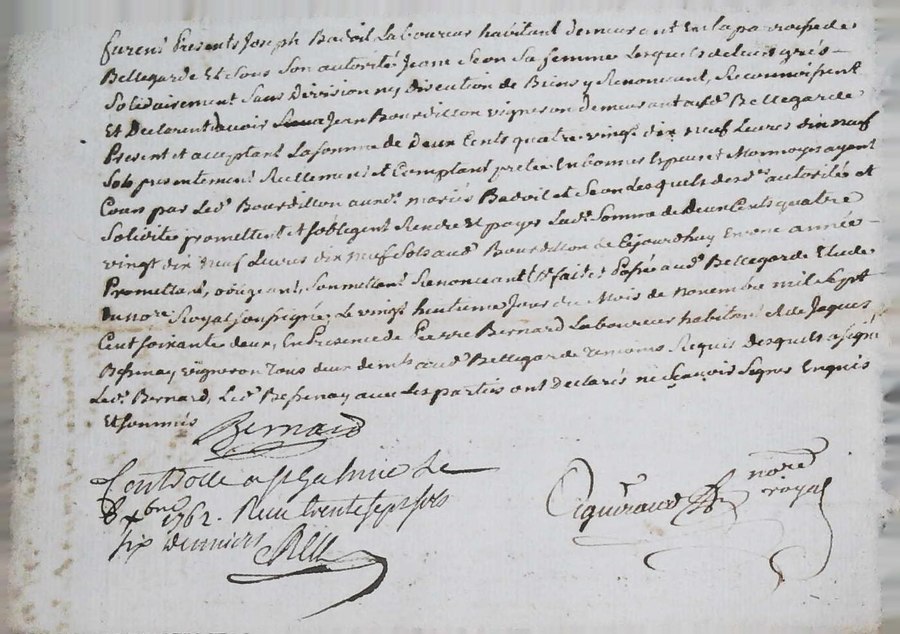 furent Presents Joseph Badoil Laboureur habitant demeurant En la parroisse de
Bellegarde Et sous son autorité Jeane Seon sa femme Lesquels de leurs grés
Solidairement sans Division ny discution de Biens y Renoncant, Reconnoissent
Et Declarent devoir a Jean Bourdillon vigneron demeurant aud. Bellegarde
Present et acceptant La somme de deux Cents quatre vingt dix neuf Livres dix neuf
Sols presentement Reellement et Comptant pretée En bonnes Especes et Monnoyes ayant
Cours par Led. Bourdillon auxd. mariés Badoil et Seon Lesquels desd. autorités et
Solidité promettent et s'obligent Rendre Et payer Lad. Somme de deux Cents quatre
vingt dix neuf Livres dix neuf Sols aud. Bourdillon de Cejourdhuy en une année
Promettant, obligeant, Soumettant Renoncant & fait et Passé aud. Bellegarde Etude
du nore. Royal soussigné, Le vingt huitieme Jour du Mois de novembre mil Sept
Cent soixante deux, En Presence de Pierre Bernard Laboureur habitant & de Jaques
Bessenay vigneron tous deux demts. aud. Bellegarde temoins Requis desquels a signé
Led. Bernard, Led. Bessenay avec Les parties ont Declarés ne sçavoir signer Enquis
Et sommés
Bernard
Controlle a St Galmier Le
8 xbre 1762. Reçu trente sept sols
six denniers
nore.
royal